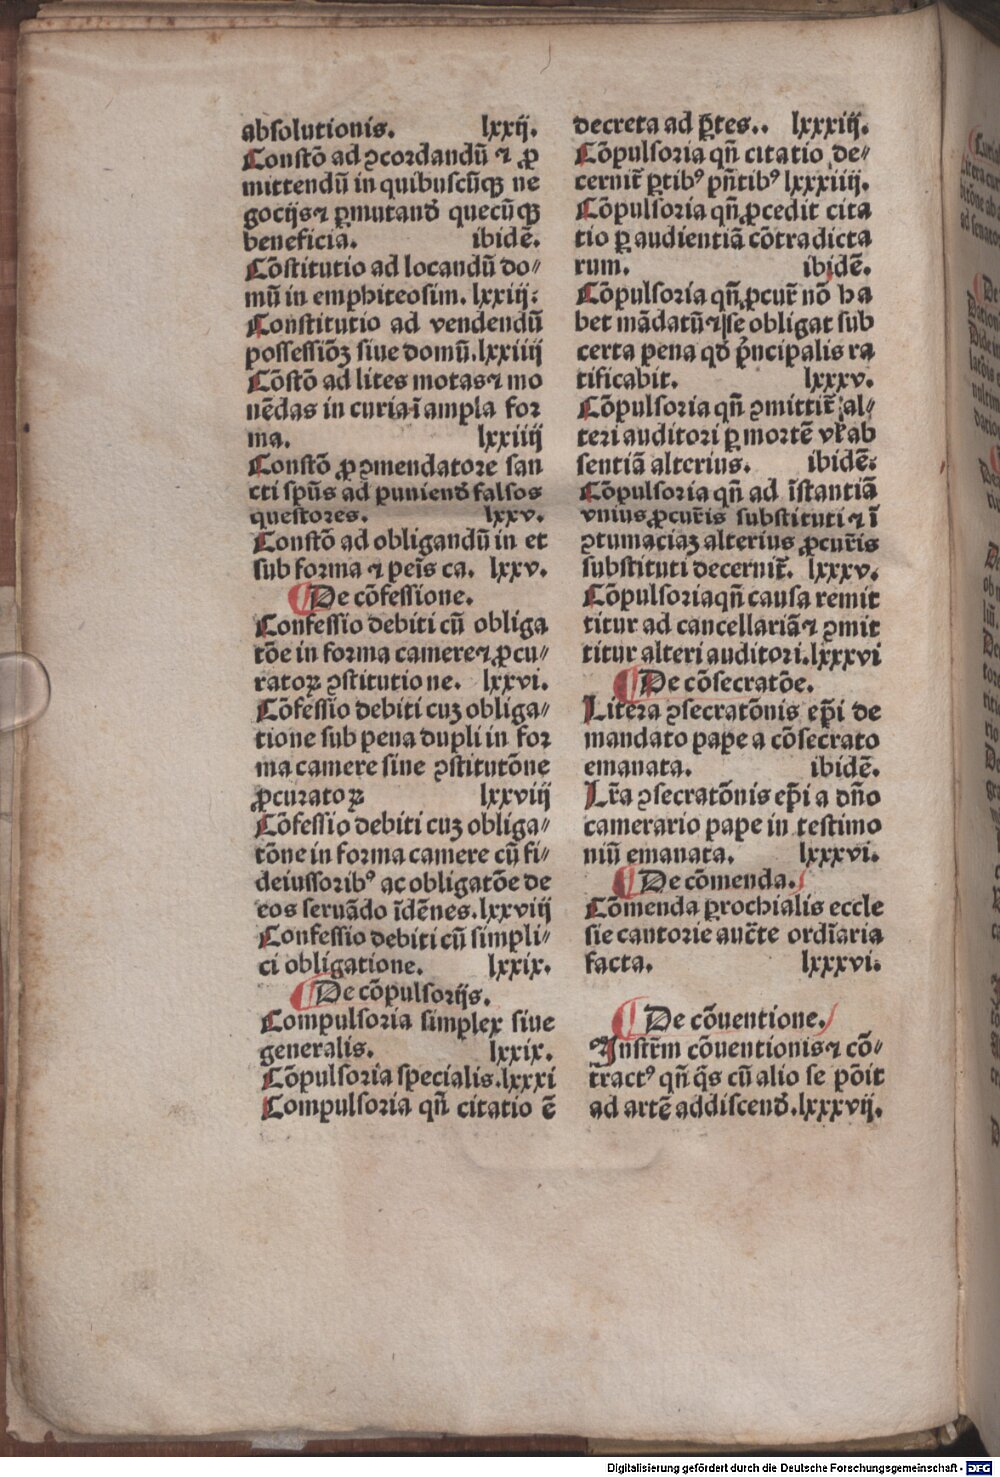 absolutionis. lxxij.
Constō ad ꝯcordandū ⁊ ꝓ
mittendū in quibuscūqꝫ ne
gocijs⁊ ꝑmutand̄ quecūqꝫ
beneficia. ibidē.
Cōstitutio ad locandū do⸗
mū in emphiteosim. lxxiij:
Constitutio ad vendendū
possessiōꝫ siue domū.lxxiiij
Cōstō ad lites motas⁊ mo
uēdas in curia ī ampla for
ma. lxxiiij
Constō ꝓ ꝯmendatore san
cti spūs ad puniend̄ falsos
questores. lxxv.
Constō ad obligandū in et
sub forma ⁊ peīs ca. lxxv.
De cōfessione.
Confessio debiti cū obliga
tōe in forma camere⁊ ꝓcu⸗
ratoꝝ ꝯstitutione. lxxvi.
Cōfessio debiti cuꝫ obliga⸗
tione sub pena dupli in for
ma camere sine ꝯstitutōne
ꝓcuratoꝝ lxxviij
Cōfessio debiti cuꝫ obliga⸗
tōne in forma camere cū fi⸗
deiussoribꝰ ac obligatōe de
eos seruādo īdēnes.lxxviij
Confessio debiti cū simpli⸗
ci obligatione. lxxix.
De cōpulsorijs.
Compulsoria simplex siue
generalis. lxxix.
Cōpulsoria specialis.lxxxi
Compulsoria qn̄ citatio ē
decreta ad ꝑtes.. lxxxiij.
Cōpulsoria qn̄ citatio de⸗
cernit̄ ꝑtibꝰ pn̄tibꝰ lxxxiiij.
Cōpulsoria qn̄ ꝓcedit cita
tio ꝑ audientiā cōtradicta
rum. ibidē.
Cōpulsoria qn̄ ꝓcur̄ nō ha
bet mādatū⁊ se obligat sub
certa pena qd̄ pͥncipalis ra
tificabit. lxxxv.
Cōpulsoria qn̄ ꝯmittit̄ al⸗
teri auditori ꝑ mortē vl̓ ab
sentiā alterius. ibidē:
Cōpulsoria qn̄ ad īstantiā
vnius ꝓcur̄is substituti ⁊ ī
ꝯtumaciaꝫ alterius ꝓcur̄is
substituti decernit̄. lxxxv.
Cōpulsoriaqn̄ causa remit
titur ad cancellariā⁊ ꝯmit
titur alteri auditori.lxxxvi
De cōsecratōe.
Litera ꝯsecratōnis ep̄i de
mandato pape a cōsecrato
emanata. ibidē.
Lr̄a ꝯsecratōnis ep̄i a dn̄o
camerario pape in testimo
niū emanata. lxxxvi.
De cōmenda.
Cōmenda ꝑrochialis eccle
sie cantorie auc̄te ordīaria
facta. lxxxvi.
De cōuentione.
Instr̄m cōuentionis⁊ cō⸗
tractꝰ qn̄ qͥs cū alio se pōit
ad artē addiscend̄.lxxxvij.
Digitalisierung gefördert durch die Deutsche Forschungsgemeinschaft - DFG